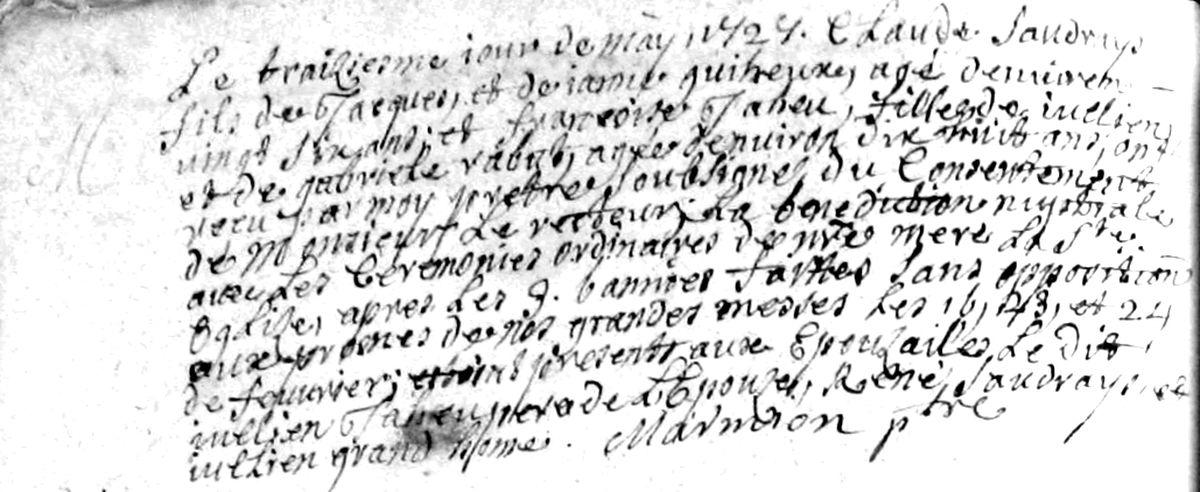 Le traiziesme iour de may 1727. Claude Saudrays
fils de Jacques, et de ianne guiheux, agé denuiron
vingt six ans, et françoise Jaheu, fille de iullien
et de gabriele rabu, agée denuiron dix huit ans, ont
recu par moy prêtre soubsigné, du Consentement
de Monsieur le recteur, la benediction nuptiale
auec les Ceremonies ordinaires de nre mere la Ste.
Eglise, apres les 3. bannies faittes sans opposition
aux prosnes de nos grandes messes les 16, 23, et 24
de feuurier, presents aux Epouzailles le dit
iullien Jaheu pere de L'Epouse, René Saudrays, et
iullien grand home. Marmion ptre